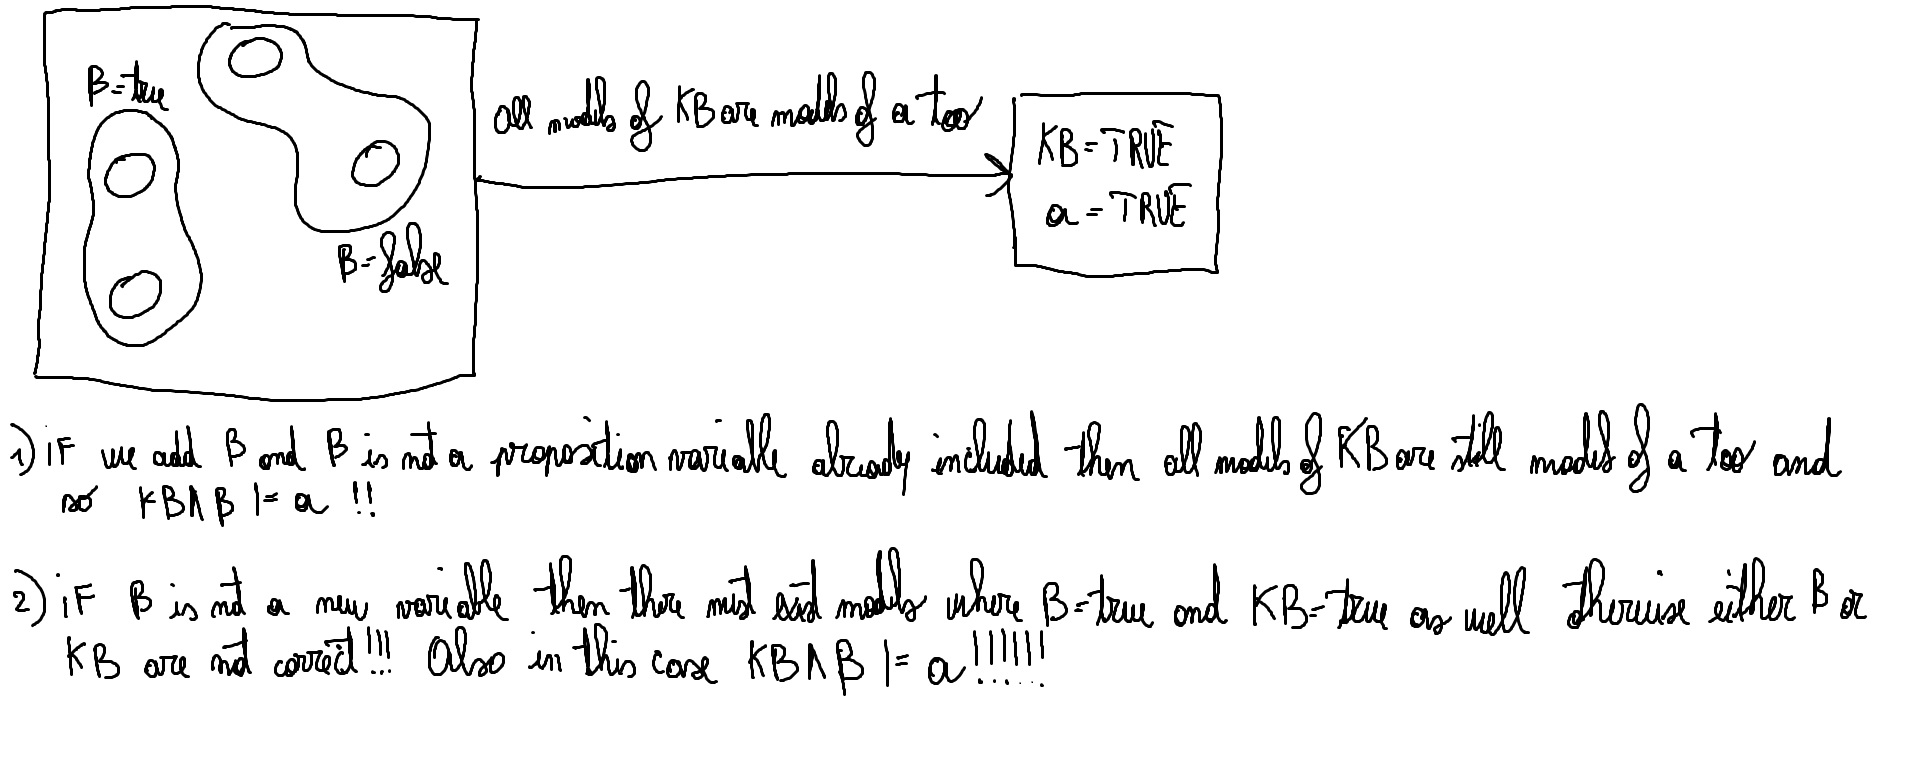 B=true
all models of KB are models of a too
KB=TRUE
a=TRUE
B=false
1) iF we add B and B is not a proposition variable already included then all models of KB are still models of a too and
so KB∧B |= a !!
2) iF B is not a new variable then there must exist models where B=true and KB=true as well otherwise either B or
KB are not correct!!! Also in this case KB∧B |= a!!!!!!